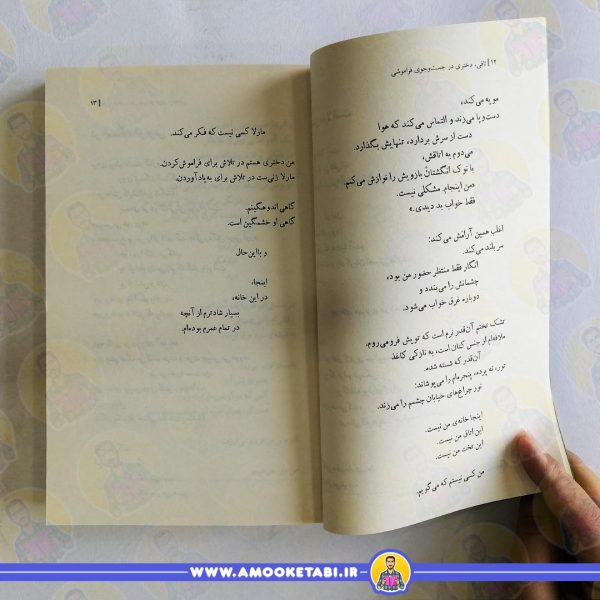 ۱۲ | تافی، دختری در جست‌وجوی فراموشی
مویه می‌کند،
دست‌وپا می‌زند و التماس می‌کند که هوا
دست از سرش بردارد، تنهایش بگذارد.
می‌دوم به اتاقش،
با نوک انگشتان بازویش را نوازش می‌کنم.
«من اینجام. مشکلی نیست.
فقط خواب بد دیدی.»
اغلب همین آرامش می‌کند:
سر بلند می‌کند،
انگار فقط منتظر حضور من بود،
چشمانش را می‌بندد و
دوباره غرق خواب می‌شود.
تشک تختم آن‌قدر نرم است که تویش فرو می‌روم،
ملافه‌ام از جنس کتان است، به نازکی کاغذ
آن‌قدر که شسته شده.
تور، نه پرده، پنجره‌ام را می‌پوشاند:
نور چراغ‌های خیابان چشمم را می‌زند.
اینجا خانه‌ی من نیست.
این اتاق من نیست.
این تخت من نیست.
من کسی نیستم که می‌گویم.
| ۱۳
مارلا کسی نیست که فکر می‌کند.
من دختری هستم در تلاش برای فراموش‌کردن.
مارلا زنی‌ست در تلاش برای به‌یادآوردن.
گاهی اندوهگینم.
گاهی او خشمگین است.
و بااین‌حال
اینجا،
در این خانه،
بسیار شادترم از آنچه
در تمام عمرم بوده‌ام.
WWW.AMOOKETABI.IR